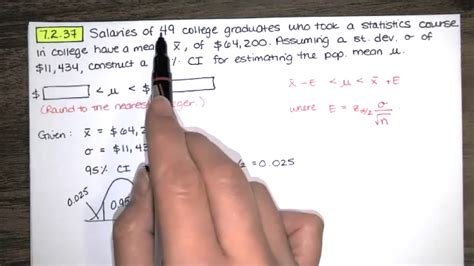 7.2.37 Salaries of 49 college graduates who took a statistics course
in college have a mean x̄, of $64,200. Assuming a st. dev. σ of
$11,434, construct a % CI for estimating the pop. mean μ.
$ < μ < $
(Round to the nearest integer.)
x̄ - E < μ < x̄ + E
where E = z_α/2 σ/√n
Given: x̄ = $64,
σ = $11,
95% CI
/2 = 0.025
0.025 0.95